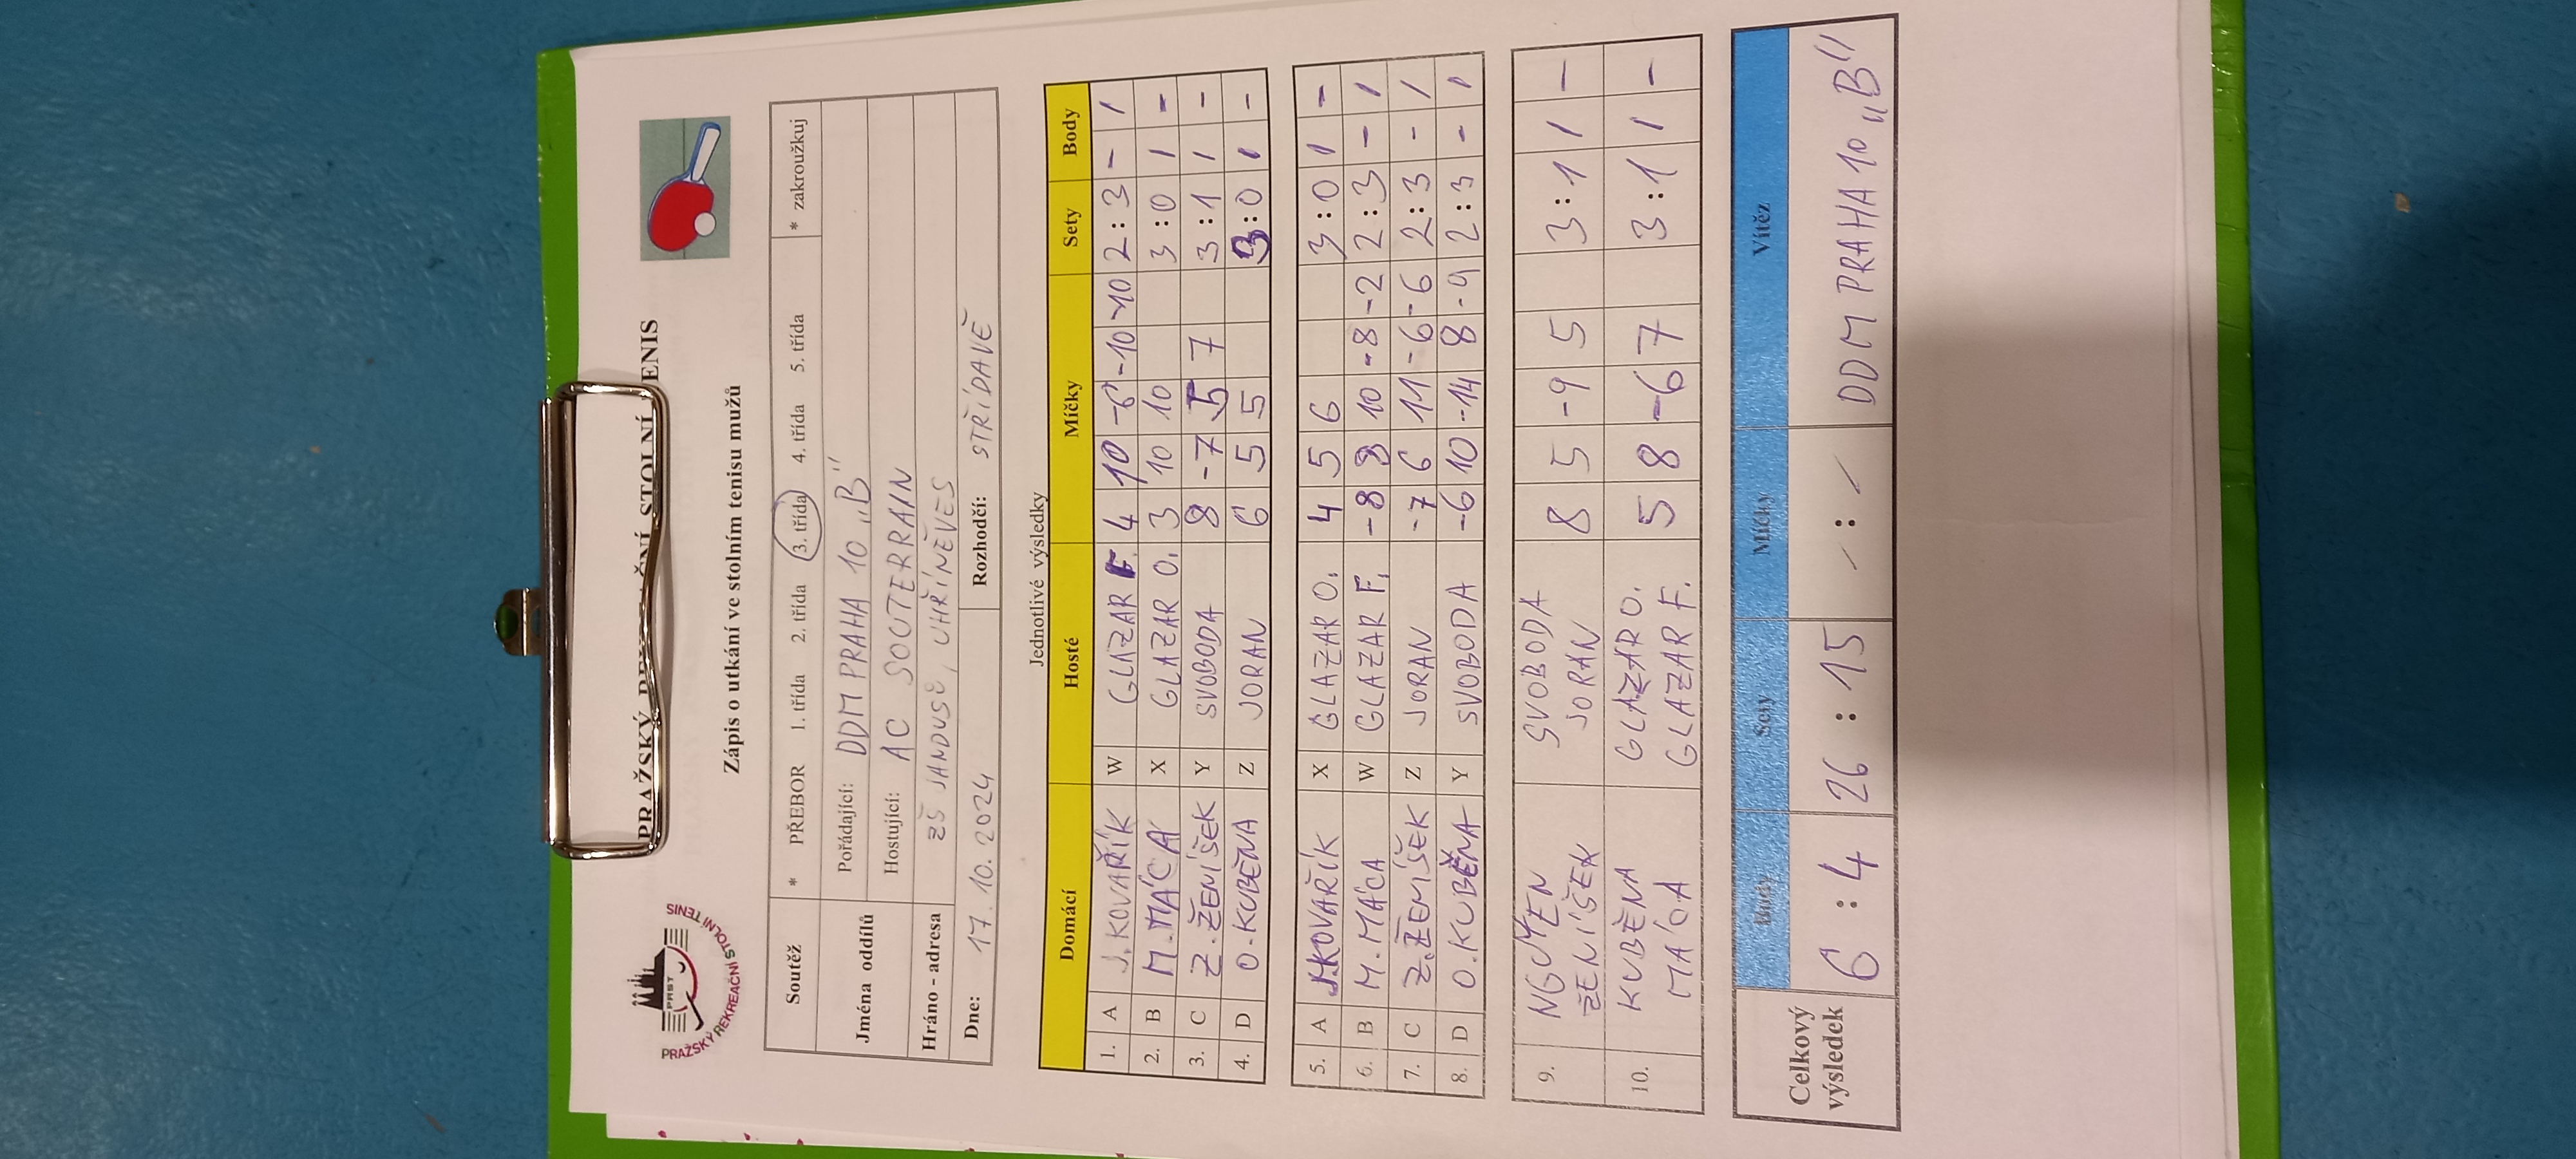 PRAŽSKÝ REKREAČNÍ STOLNÍ TENIS
PRST
PRAŽSKÝ REKREAČNÍ STOLNÍ TENIS
Zápis o utkání ve stolním tenisu mužů
Soutěž * PŘEBOR 1. třída 2. třída 3. třída 4. třída 5. třída * zakroužkuj
Jména oddílů Pořádající: DDM PRAHA 10 „B"
Hostující: AC SOUTERRAIN
Hráno - adresa ZŠ JANDUSŮ, UHŘÍNĚVES
Dne: 17.10.2024 Rozhodčí: STŘÍDAVĚ
Jednotlivé výsledky
Domácí Hosté Míčky Sety Body
1. A J. KOVAŘÍK W GLAZAR F. 4 10 -6 -10 -10 2:3 - 1
2. B M. MÁCA X GLAZAR O. 3 10 10 3:0 1 -
3. C Z. ŽENÍŠEK Y SVOBODA 8 -7 5 7 3:1 1 -
4. D O. KUBĚNA Z JORAN 6 5 5 3:0 1 -
5. A J. KOVAŘÍK X GLAZAR O. 4 5 6 3:0 1 -
6. B M. MÁCA W GLAZAR F. -8 9 10 -8 -2 2:3 - 1
7. C Z. ŽENÍŠEK Z JORAN -7 6 11 -6 -6 2:3 - 1
8. D O. KUBĚNA Y SVOBODA -6 10 -14 8 -9 2:3 - 1
9. NGUYEN SVOBODA 8 5 -9 5 3:1 1 -
ŽENÍŠEK JORAN
10. KUBĚNA GLAZAR O. 5 8 -6 7 3:1 1 -
MÁCA GLAZAR F.
Body Sety Míčky Vítěz
Celkový výsledek 6:4 26:15 /:/ DDM PRAHA 10 „B"